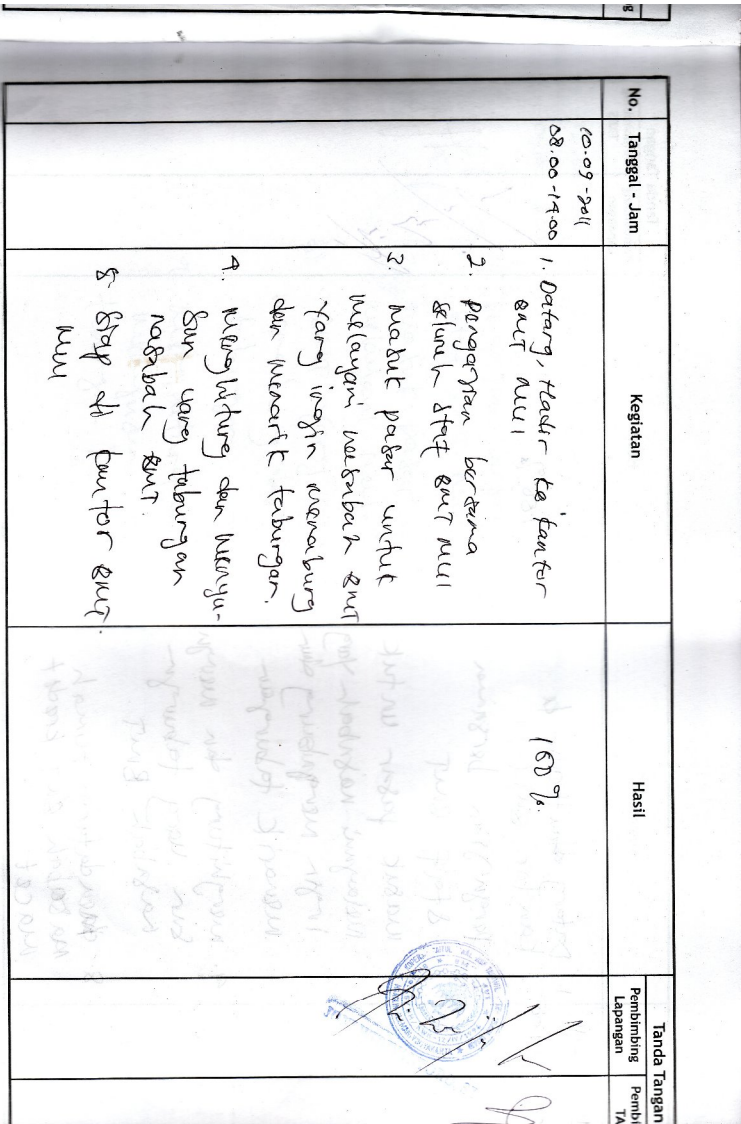 No.
Tanggal - Jam
Kegiatan
Hasil
Tanda Tangan
Pembimbing
Lapangan
Pembi
TA
10-09-2011
08.00-14.00
1. Datang, Hadir ke kantor
BMT MUI
2. Pengajian bersama
seluruh staf BMT MUI
3. Masuk pasar untuk
melayani nasabah BMT
yang ingin menabung
dan menarik tabungan.
4. Menghitung dan menyu-
sun uang tabungan
nasabah BMT.
5. Siap di kantor BMT.
MUI
100%